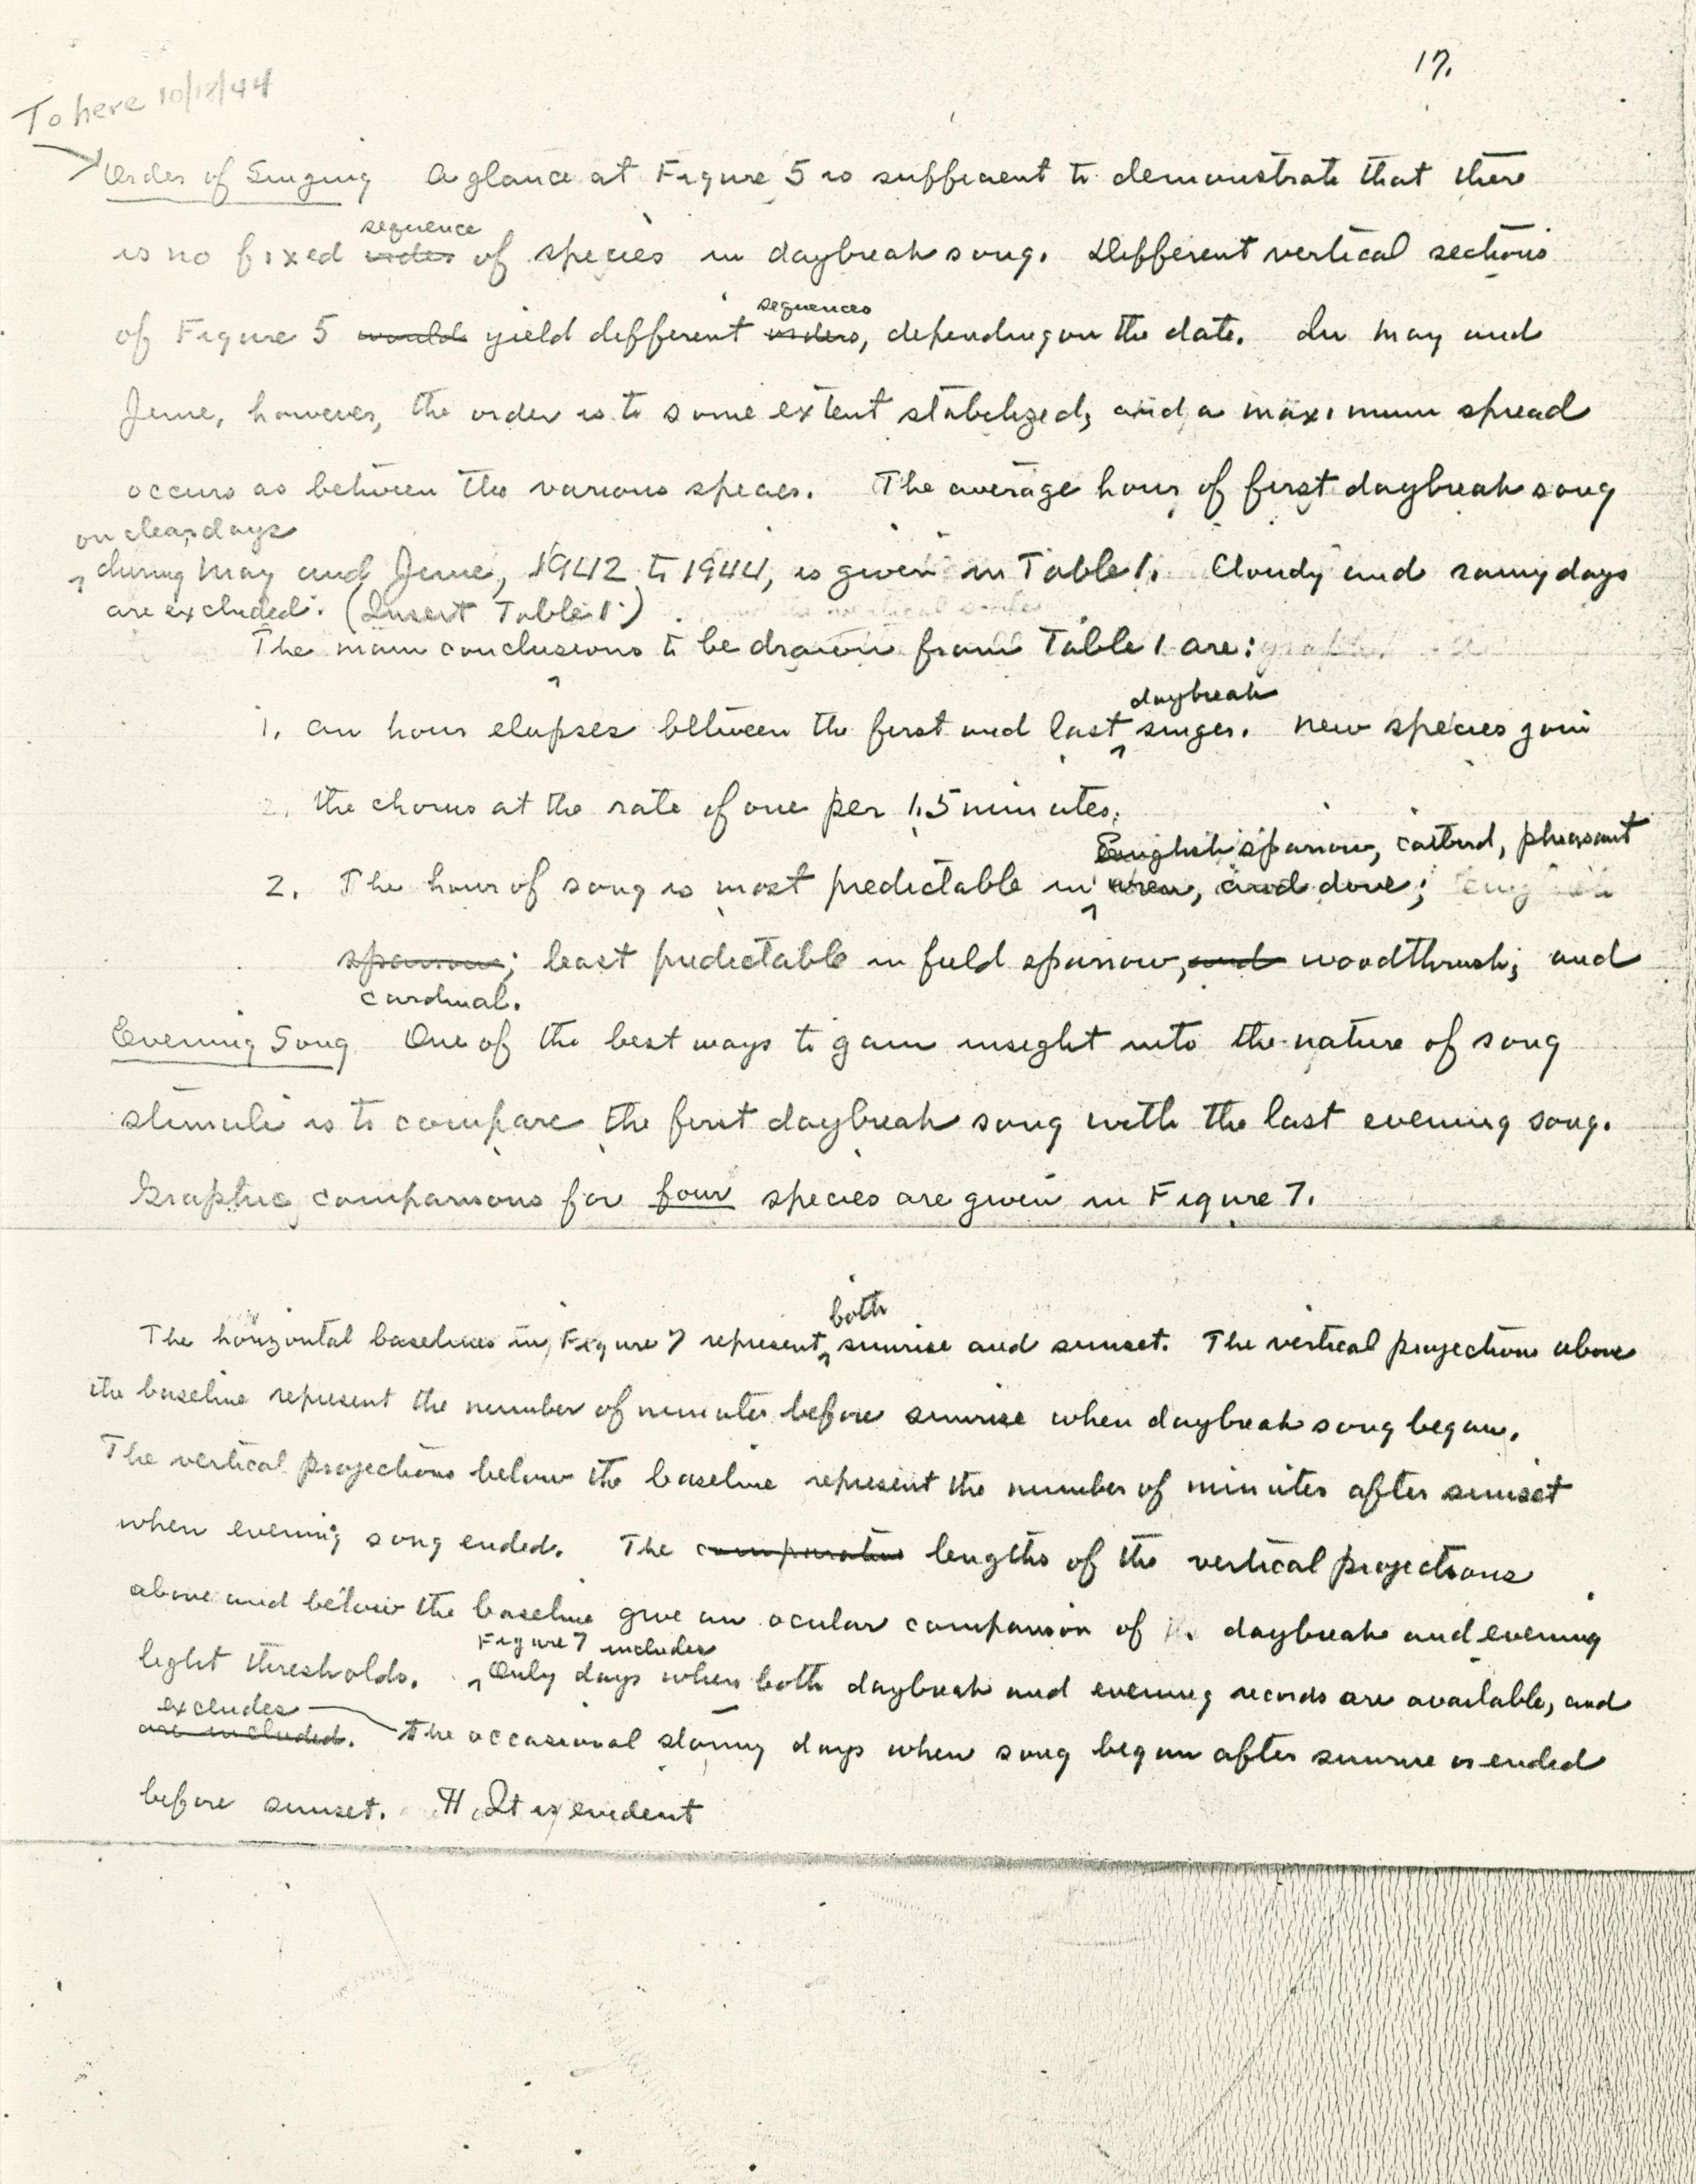 17.
To here 10/18/44
Order of Singing A glance at Figure 5 is sufficient to demonstrate that there
sequence
is no fixed order of species in daybreak song. Different vertical sections
sequences
of Figure 5 would yield different orders, depending on the date. In May and
June, however, the order is to some extent stabilized, and a maximum spread
occurs as between the various species. The average hour of first daybreak song
on clear days
during May and June, 1942 to 1944, is given in Table 1. Cloudy and rainy days
are excluded. (Insert Table 1.)
The main conclusions to be drawn from Table 1 are:
daybreak
1. An hour elapses between the first and last singer. New species join
2. the chorus at the rate of one per 1.5 minutes.
English sparrow, catbird, pheasant
2. The hour of song is most predictable in wren, and dove;
sparrow; least predictable in field sparrow, and woodthrush; and
cardinal.
Evening Song One of the best ways to gain insight into the nature of song
stimuli is to compare the first daybreak song with the last evening song.
Graphic comparisons for four species are given in Figure 7.
both
The horizontal baselines in Figure 7 represent sunrise and sunset. The vertical projections above
the baseline represent the number of minutes before sunrise when daybreak song began.
The vertical projections below the baseline represent the number of minutes after sunset
when evening song ended. The comparative lengths of the vertical projections
above and below the baseline give an ocular comparison of the daybreak and evening
Figure 7 includes
light thresholds. Only days when both daybreak and evening records are available, and
excludes
are included. the occasional stormy days when song began after sunrise or ended
before sunset. It is evident